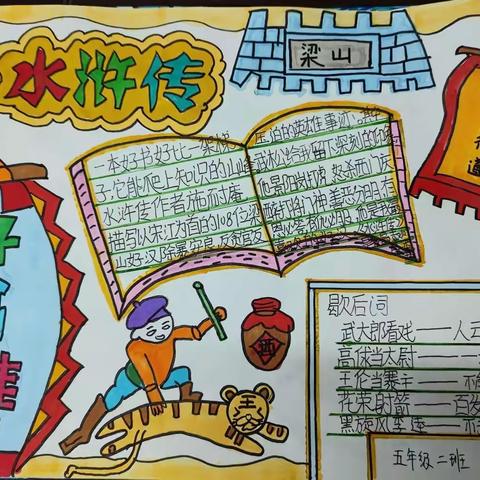 水浒传
梁山
道
一本好书好比一架梯
子,它能爬上知识的山峰
水浒传作者施耐庵,
描写以宋江为首的108位梁
山好汉除暴安良,反贪官反
压迫的英雄事迹,其中
武松给我留下深刻的印象
他景阳岗打虎 怒杀西门庆
醉打蒋门神 善恶分明 有
酒
王
歇后词
武大郎看戏——人云
高俅当太尉——一
王伦当寨主——不
花荣射箭——百发
黑旋风李逵——
五年级二班